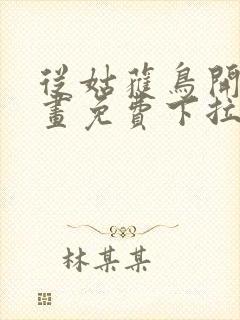 從姑蘿鳥開
畫免費下拉
林某某